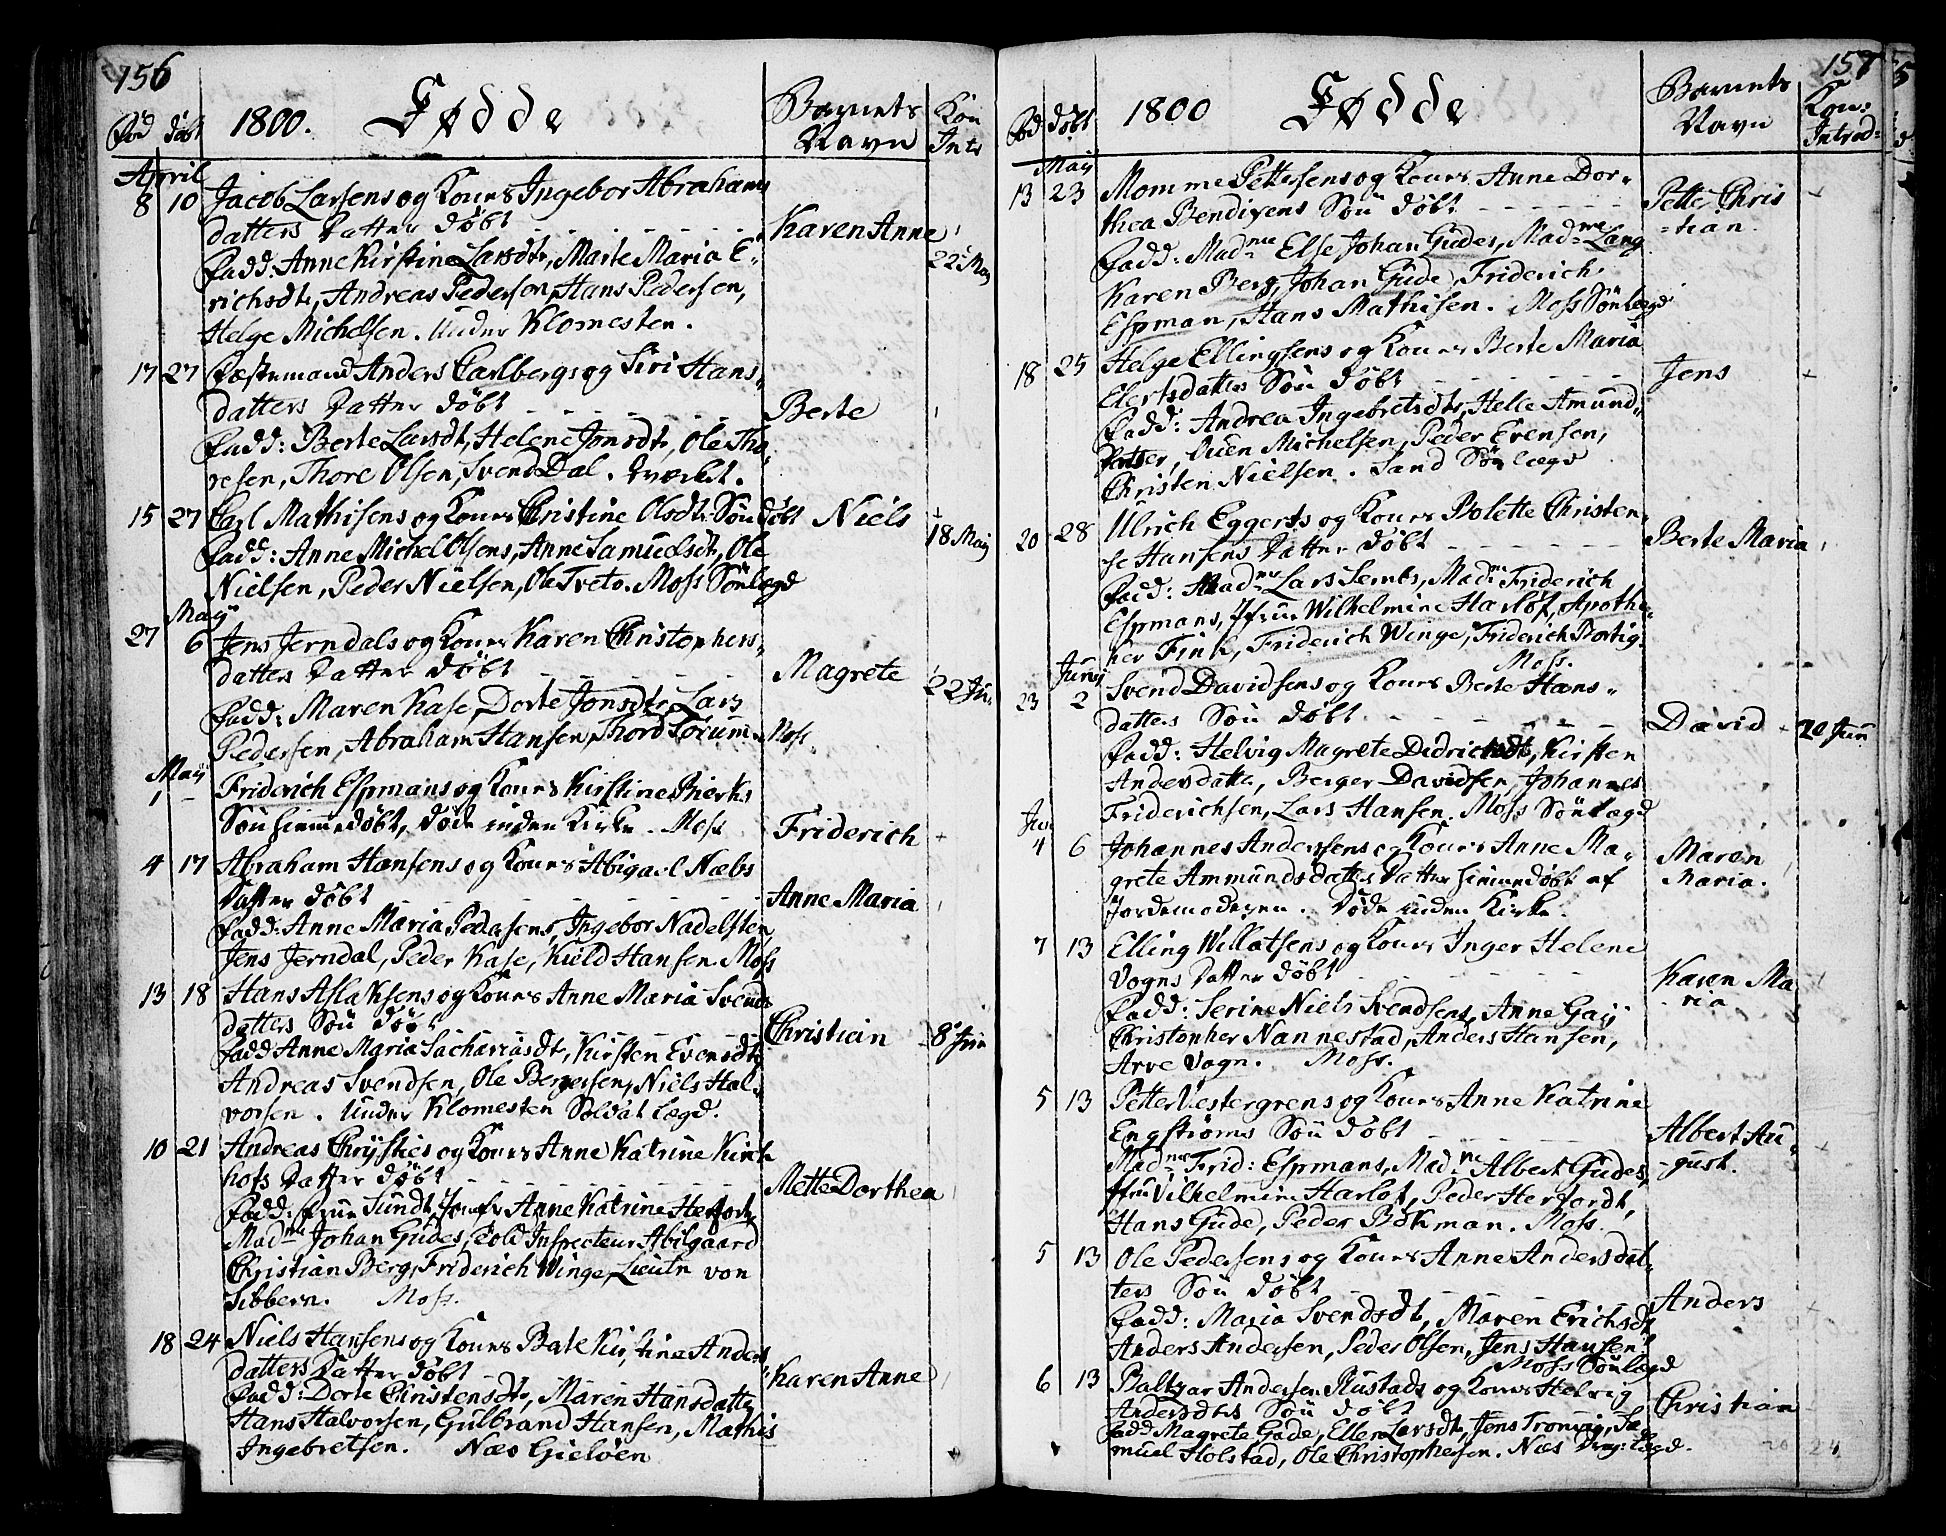 156
Fød døbt 1800. Fødde Barnets Navn Kon Intr
April
8 10 Jacob Larsens og Kones Ingebor Abrahams
datters Datter døbt Karen Anne
Fadd: Anne Kirstine Larsdtr, Marte Maria E- 22 May
richsdtr, Andreas Pedersen, Hans Pedersen,
Helge Michelsen. Under Klomesten.
17 27 Fæstemand Anders Carlbergs og Siri Hans-
datters Datter døbt Berte
Fadd: Berte Larsdt, Helene Jonsdtr, Ole Tho-
resen, Thore Olsen, Svend Dal. Værket.
15 27 Carl Mathisens og Kones Christine Olsdtr Søn døbt Niels
Fadd: Anne Michel Olsens, Anne Samuelsdt, Ole 18 May
Nielsen, Peder Nielsen, Ole Tveto. Moss Sønlægd
May
27 6 Jens Jerndals og Kones Karen Christophers-
datters Datter døbt Magrete
Fadd: Maren Kase, Dorte Jonsdtr, Lars 22 Ju.
Pedersen, Abraham Hansen, Thord Sørum. Moss.
May
1 - Friderich Espmans og Kones Kirstine Bierkes
Søn hiemmedøbt, døde inden Kirke. Moss Friderich +
4 17 Abraham Hansens og Kones Abigael Næbs
Datter døbt Anne Maria
Fadd: Anne Maria Pedersens, Ingebor Nadelsten
Jens Jerndal, Peder Kase, Kield Hansen. Moss
13 18 Hans Aslaksens og Kones Anne Maria Svends
datters Søn døbt Christian 8 Jun
Fadd: Anne Maria Sachariasdt, Kirsten Evensdtr
Andreas Svendsen, Ole Bergersen, Niels Hal-
vorsen. Under Klomesten Soldat Lægd.
10 21 Andreas Chrysties og Kones Anne Katrine Kirk
hofs Datter døbt Mette Dorthea
Fadd: Frue Sundt, Jomfr Anne Katrine Herfort,
Madme Johan Gudes, Told Inspecteur Abilgaard
Christian Berg, Friderich Winge, Lieutn von
Sibbern. Moss.
18 24 Niels Hansens og Kones Berte Kirstine Anders
datters Datter døbt Karen Anne
Fadd: Dorte Christensdtr, Maren Hansdatter
Hans Halvorsen, Gulbrand Hansen, Mathis
Ingebretsen. Næs Gieløen
157
Fød døbt 1800 Fødde Barnets Navn Kon: Introd:
May
13 23 Momme Pettersens og Kones Anne Dor-
thea Bendixens Søn døbt Petter Chris +
Fadd: Madme Else Johan Gudes, Madme Lang -tian.
Karen Berg, Johan Gude, Friderich
Espman, Hans Mathisen. Moss Sønlægd
18 25 Helge Ellingsens og Kones Berte Maria
Elertsdatters Søn døbt Jens +
Fadd: Andrea Ingebretsdtr, Helle Amund-
datter, Ouen Michelsen, Peder Evensen,
Christen Nielsen. Sand Sønlægd
20 28 Ulrich Eggerts og Kones Bolette Christen-
se Hansens Datter døbt Berte Maria
Fadd: Madme Lars Sembs, Madme Friderich
Espmans, Jfru Wilhelmine Harlof, Apothe-
ker Fink, Friderich Winge, Friderich Rostig.
Moss.
Juny
23 2 Svend Davidsens og Kones Berte Hans-
datters Søn døbt David 20 Jun
Fadd: Helvig Magrete Didrichsdt, Kirsten
Andersdatter, Berger Davidsen, Johannes
Friderichsen, Lars Hansen. Moss Sønlægd
Jun
4 6 Johannes Andersens og Kones Anne Ma- Maren
grete Ammundsdatters Datter hiemmedøbt af Maria.
Jordemoderen. Døde inden Kirke.
7 13 Elling Willatsens og Kones Inger Helene
Vogns Datter døbt Karen Ma +
Fadd: Serine Niels Svendsens, Anne Gaij ria
Christopher Nannestad, Anders Hansen,
Arve Vogn. Moss.
5 13 Petter Vestergrens og Kones Anne Katrine
Engstrøms Søn døbt Albert Au- +
Madme Frid: Espmans, Madme Albert Gudes, -gust.
Jfru Vilhelmine Harlof, Peder Herfordt,
Hans Gude, Peder Bokman. Moss.
5 13 Ole Pedersens og Kones Anne Andersdat-
ters Søn døbt Anders +
Fadd: Maria Svendsdt, Maren Erichsdt
Anders Andersen, Peder Olsen, Jens Hansen.
Moss Sønlægd
6 13 Baltzar Andersen Rustads og Kones Helvig
Andersdtrs Søn døbt Christian
Fadd: Magrete Gade, Ellen Larsdt, Jens Tronvig, Sa-
muel Holstad, Ole Christophersen. Næs Drag: Lægd.